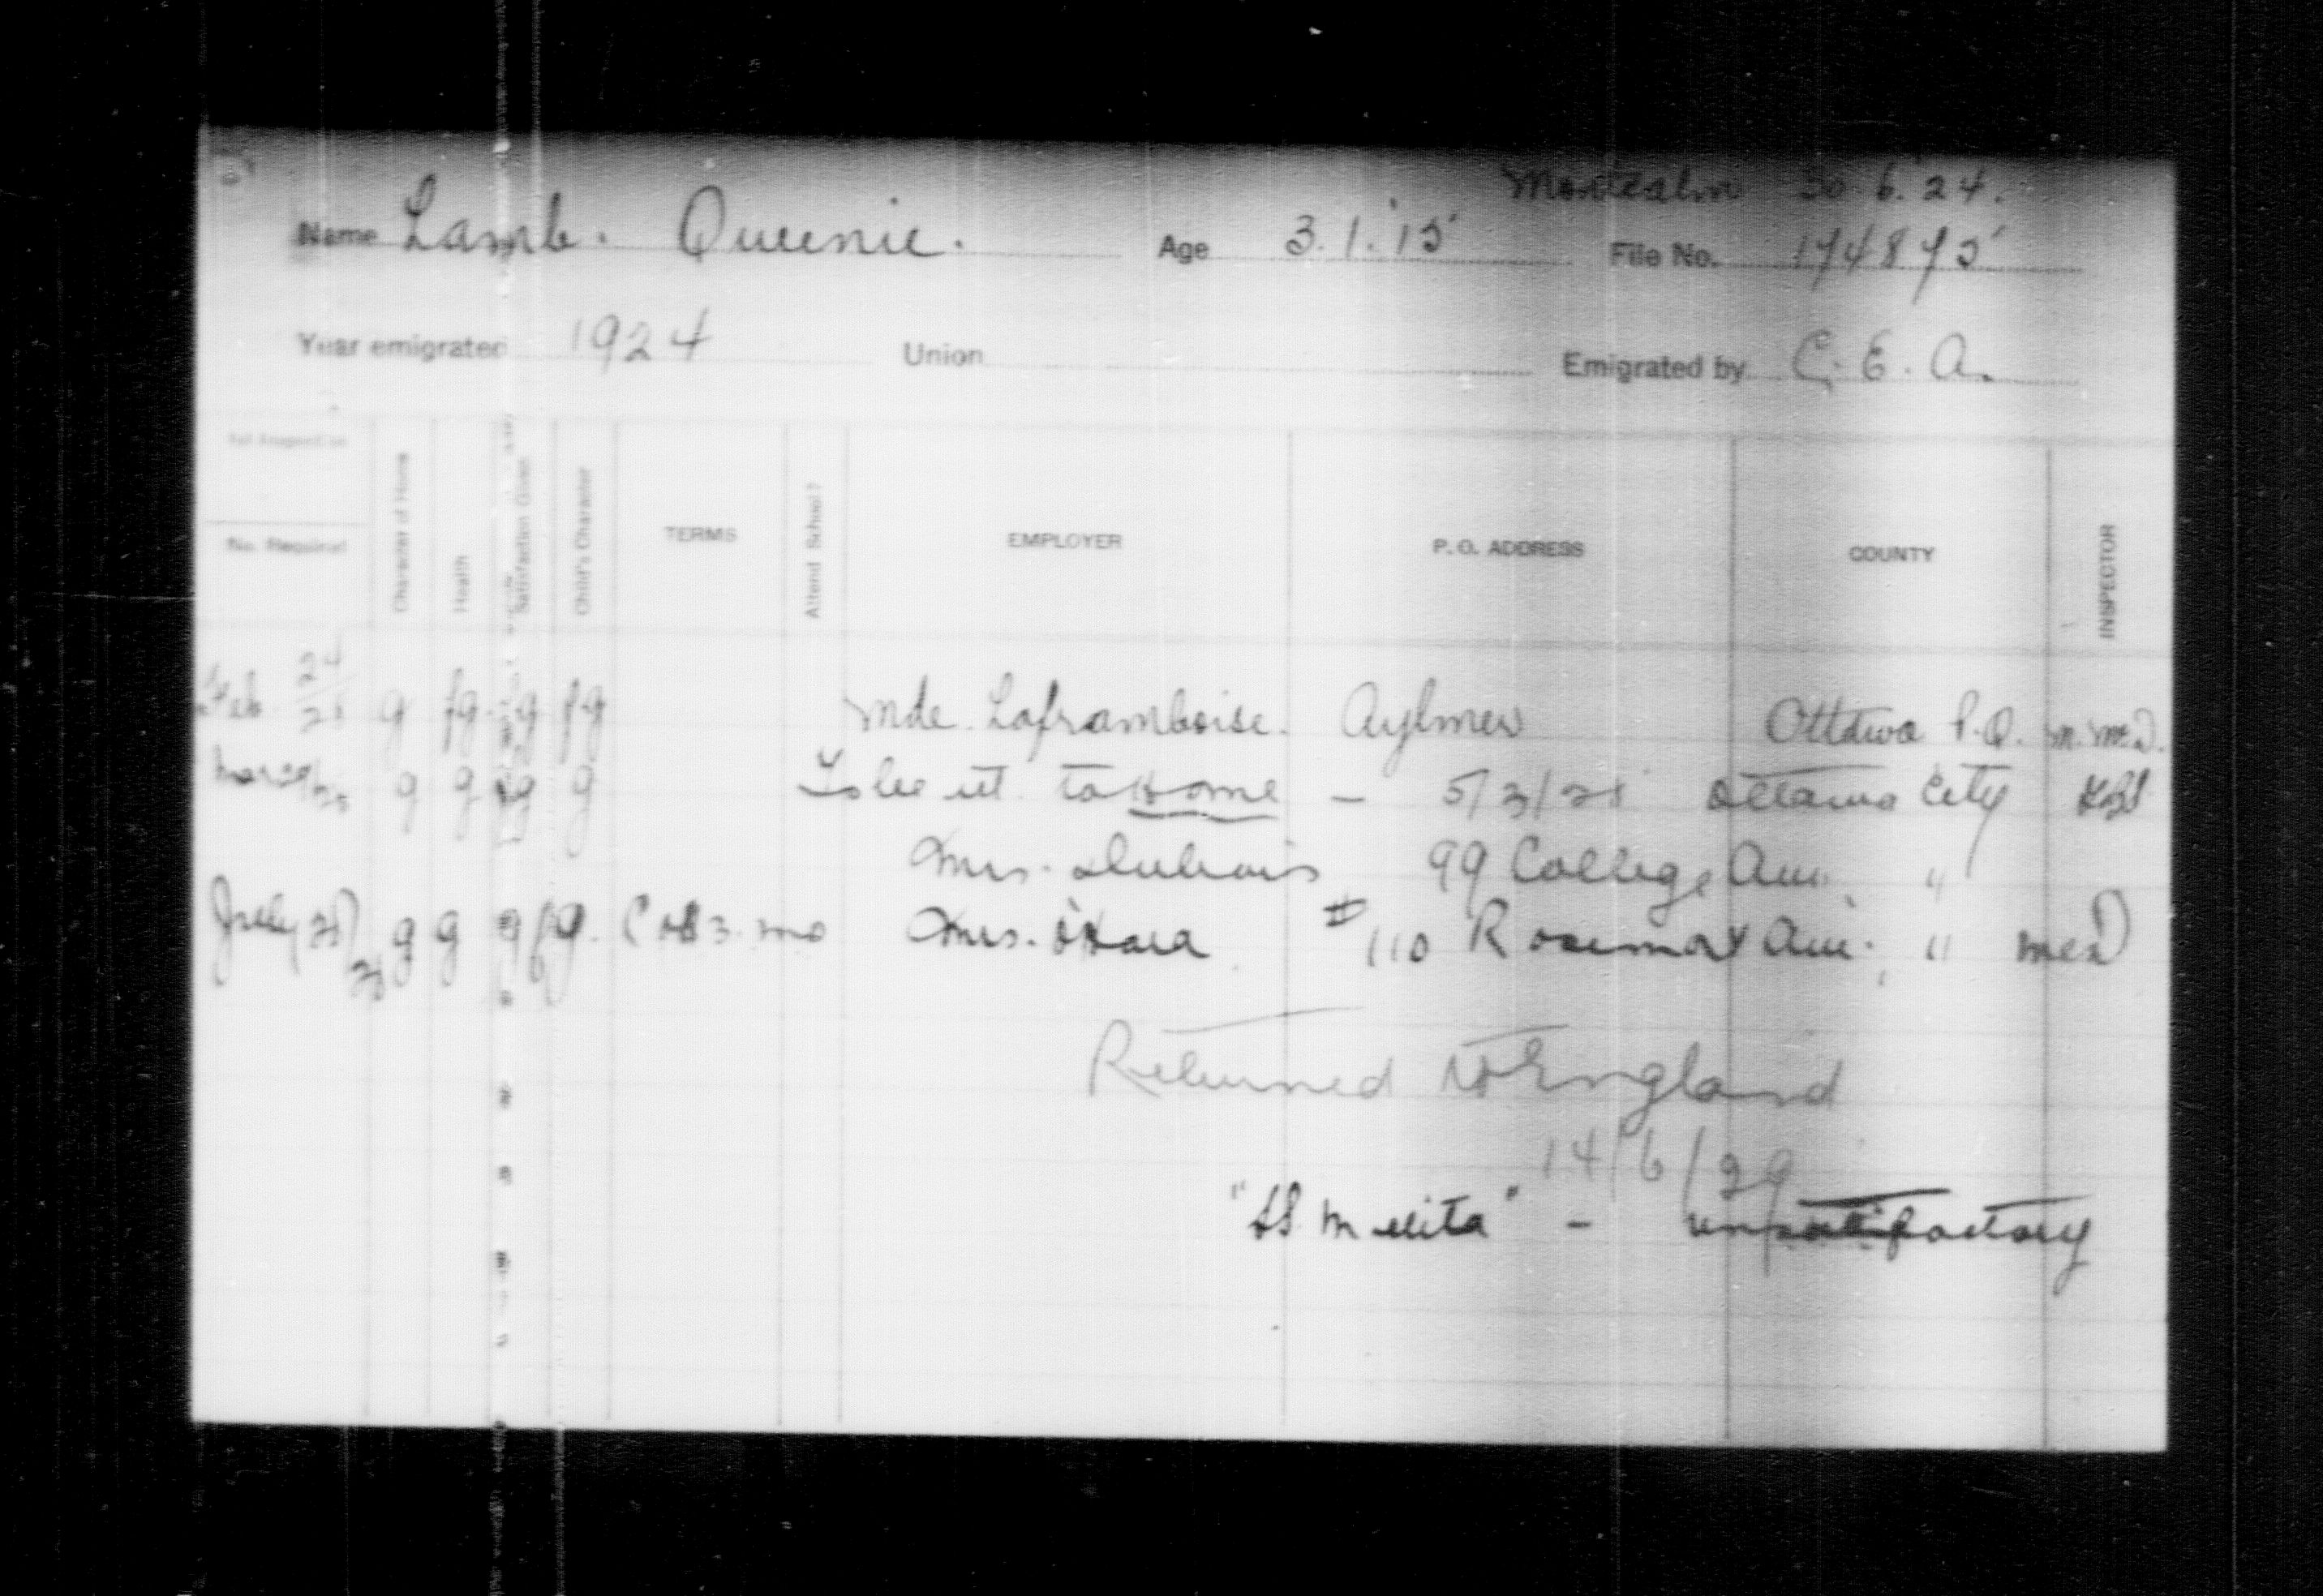 Montcalm 30.6.24.
Name Lamb. Queenie. Age 3.1.15 File No. 174875
Year emigrated 1924 Union Emigrated by C. E. A.
No. Required Character of Home Health Satisfaction Given Child's Character TERMS Attend School? EMPLOYER P. O. ADDRESS COUNTY INSPECTOR
Feb g fg g fg Mde. Laframboise. Aylmer Ottawa P.Q.
g g g g to Home — 5/3/25 Ottawa City
Mrs. Dubois 99 College Ave. "
July g g g fg. Mrs. O'Hara #110 Rosemont Ave. "
Returned to England
14/6/29
"SS Melita" - unsatisfactory